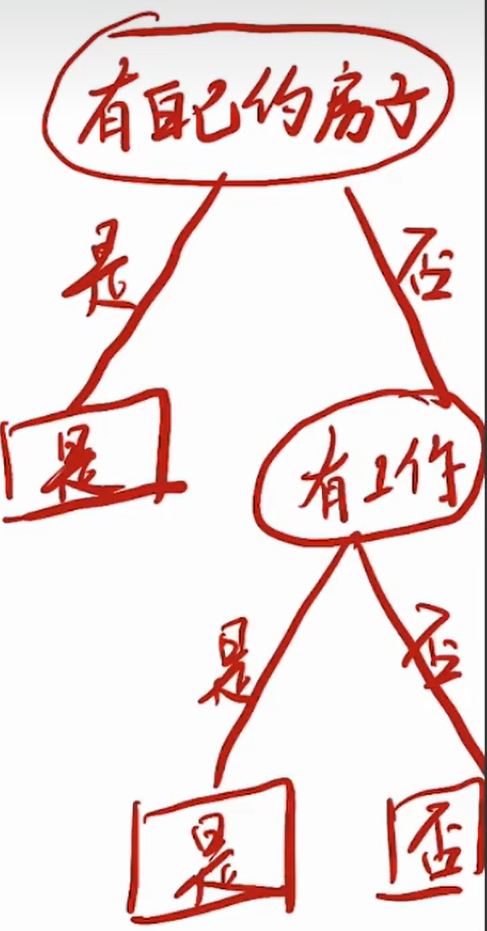 有自己的房子
是
否
是
有工作
是
否
是
否